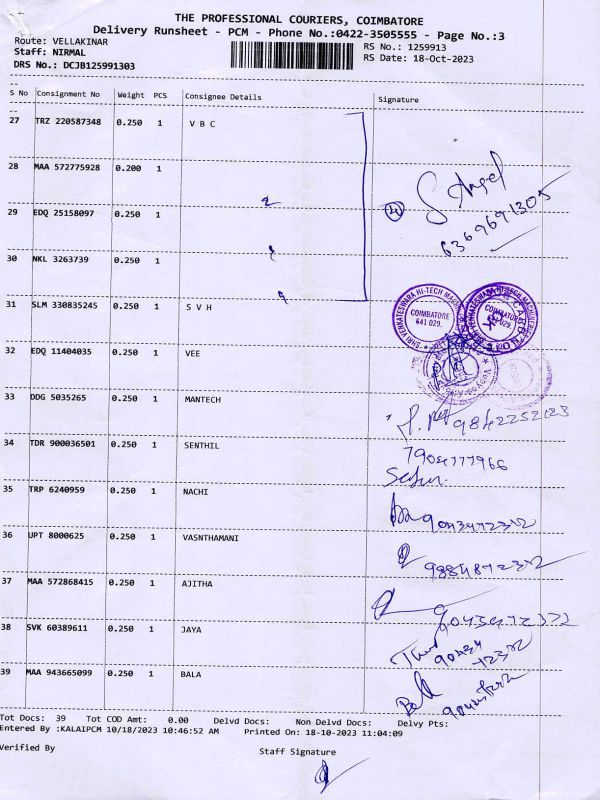 THE PROFESSIONAL COURIERS, COIMBATORE
Delivery Runsheet - PCM - Phone No.:0422-3505555 - Page No.:3
Route: VELLAKINAR RS No.: 1259913
Staff: NIRMAL RS Date: 18-Oct-2023
DRS No.: DCJB125991303
S No Consignment No Weight PCS Consignee Details Signature
27 TRZ 220587348 0.250 1 V B C
28 MAA 572775928 0.200 1
29 EDQ 25158097 0.250 1
6369691305
30 NKL 3263739 0.250 1
31 SLM 330835245 0.250 1 S V H
COIMBATORE
641 029.
32 EDQ 11404035 0.250 1 VEE
33 DDG 5035265 0.250 1 MANTECH
9842252123
34 TDR 900036501 0.250 1 SENTHIL
7904777966
35 TRP 6240959 0.250 1 NACHI
36 UPT 8000625 0.250 1 VASNTHAMANI
37 MAA 572868415 0.250 1 AJITHA
38 SVK 60389611 0.250 1 JAYA
39 MAA 943665099 0.250 1 BALA
Tot Docs: 39 Tot COD Amt: 0.00 Delvd Docs: Non Delvd Docs: Delvy Pts:
Entered By :KALAIPCM 10/18/2023 10:46:52 AM Printed On: 18-10-2023 11:04:09
Verified By Staff Signature